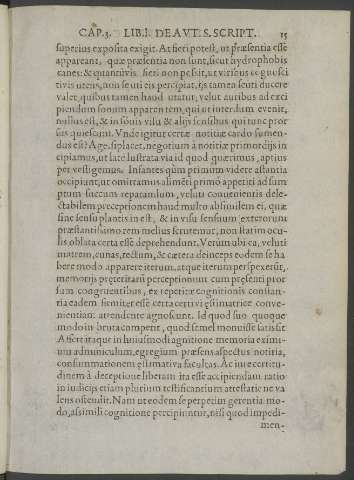 CAP.3. LIB.I. DE AVT. S. SCRIPT. 15
superius exposita exigit. At fieri potest, ut præsentia esse
appareant, quæ præsentia non sunt, sicut hydrophobis
canes: & quamuis fieri non possit, ut viribus cognosci
tivis utens, non se uti eis percipiat, ijs tamen se uti ducere
valet, quibus tamen haud utatur, velut auribus ad exci
piendum sonum apparentem, qui ut interdum evenit,
nullus est, & in somis visu & alijs sensibus qui tunc pror
sus quiescunt. Vnde igitur certæ notitiæ cardo sumen-
dus est? Age, si placet, negotium à notitiæ primordijs in
cipiamus, ut late lustrata via id quod quærimus, aptius
pervestigemus. Infantes qum primum videre astantia
occipiunt, ut omittamus alimēti primò appetiti ad sum
ptum succum reparandum, veluti convenientis dele-
ctabilem preceptionem haud multo absimilem ei, quæ
sine sensu plantis in est, & in visu sensuum exterorum
præstantissimo rem melius scrutemur, non statim ocu-
lis oblata certa esse deprehendunt. Verùm ubi ea, veluti
matrem, cunas, tectum, & cætera deinceps eodem se ha
bere modo apparere iterum atque iterum perspexerūt,
memorijs præteritarū perceptionum cum presenti pror
sum congruentibus, ex repetitæ cognitionis constan-
tia eadem firmiter esse certa certi vi æstimatrice conve-
nientiam attendente agnoscunt. Id quod suo quoque
modo in bruta competit, quod semel monuisse satis sit
Affert itaque in huiusmodi agnitione memoria eximi-
um adminiculum, egregium præsens aspectus notitia,
consummationem æstimativa facultas. Ac iure certitu-
dinem à deceptione liberam ita esse accipiendam ratio
in iudicijs etiam plurium testificantium attestatione va
lens ostendit. Nam ut eodem se perpetim gerentia mo-
do, assimili cognitione percipiuntur, nisi quod impedi-
men-